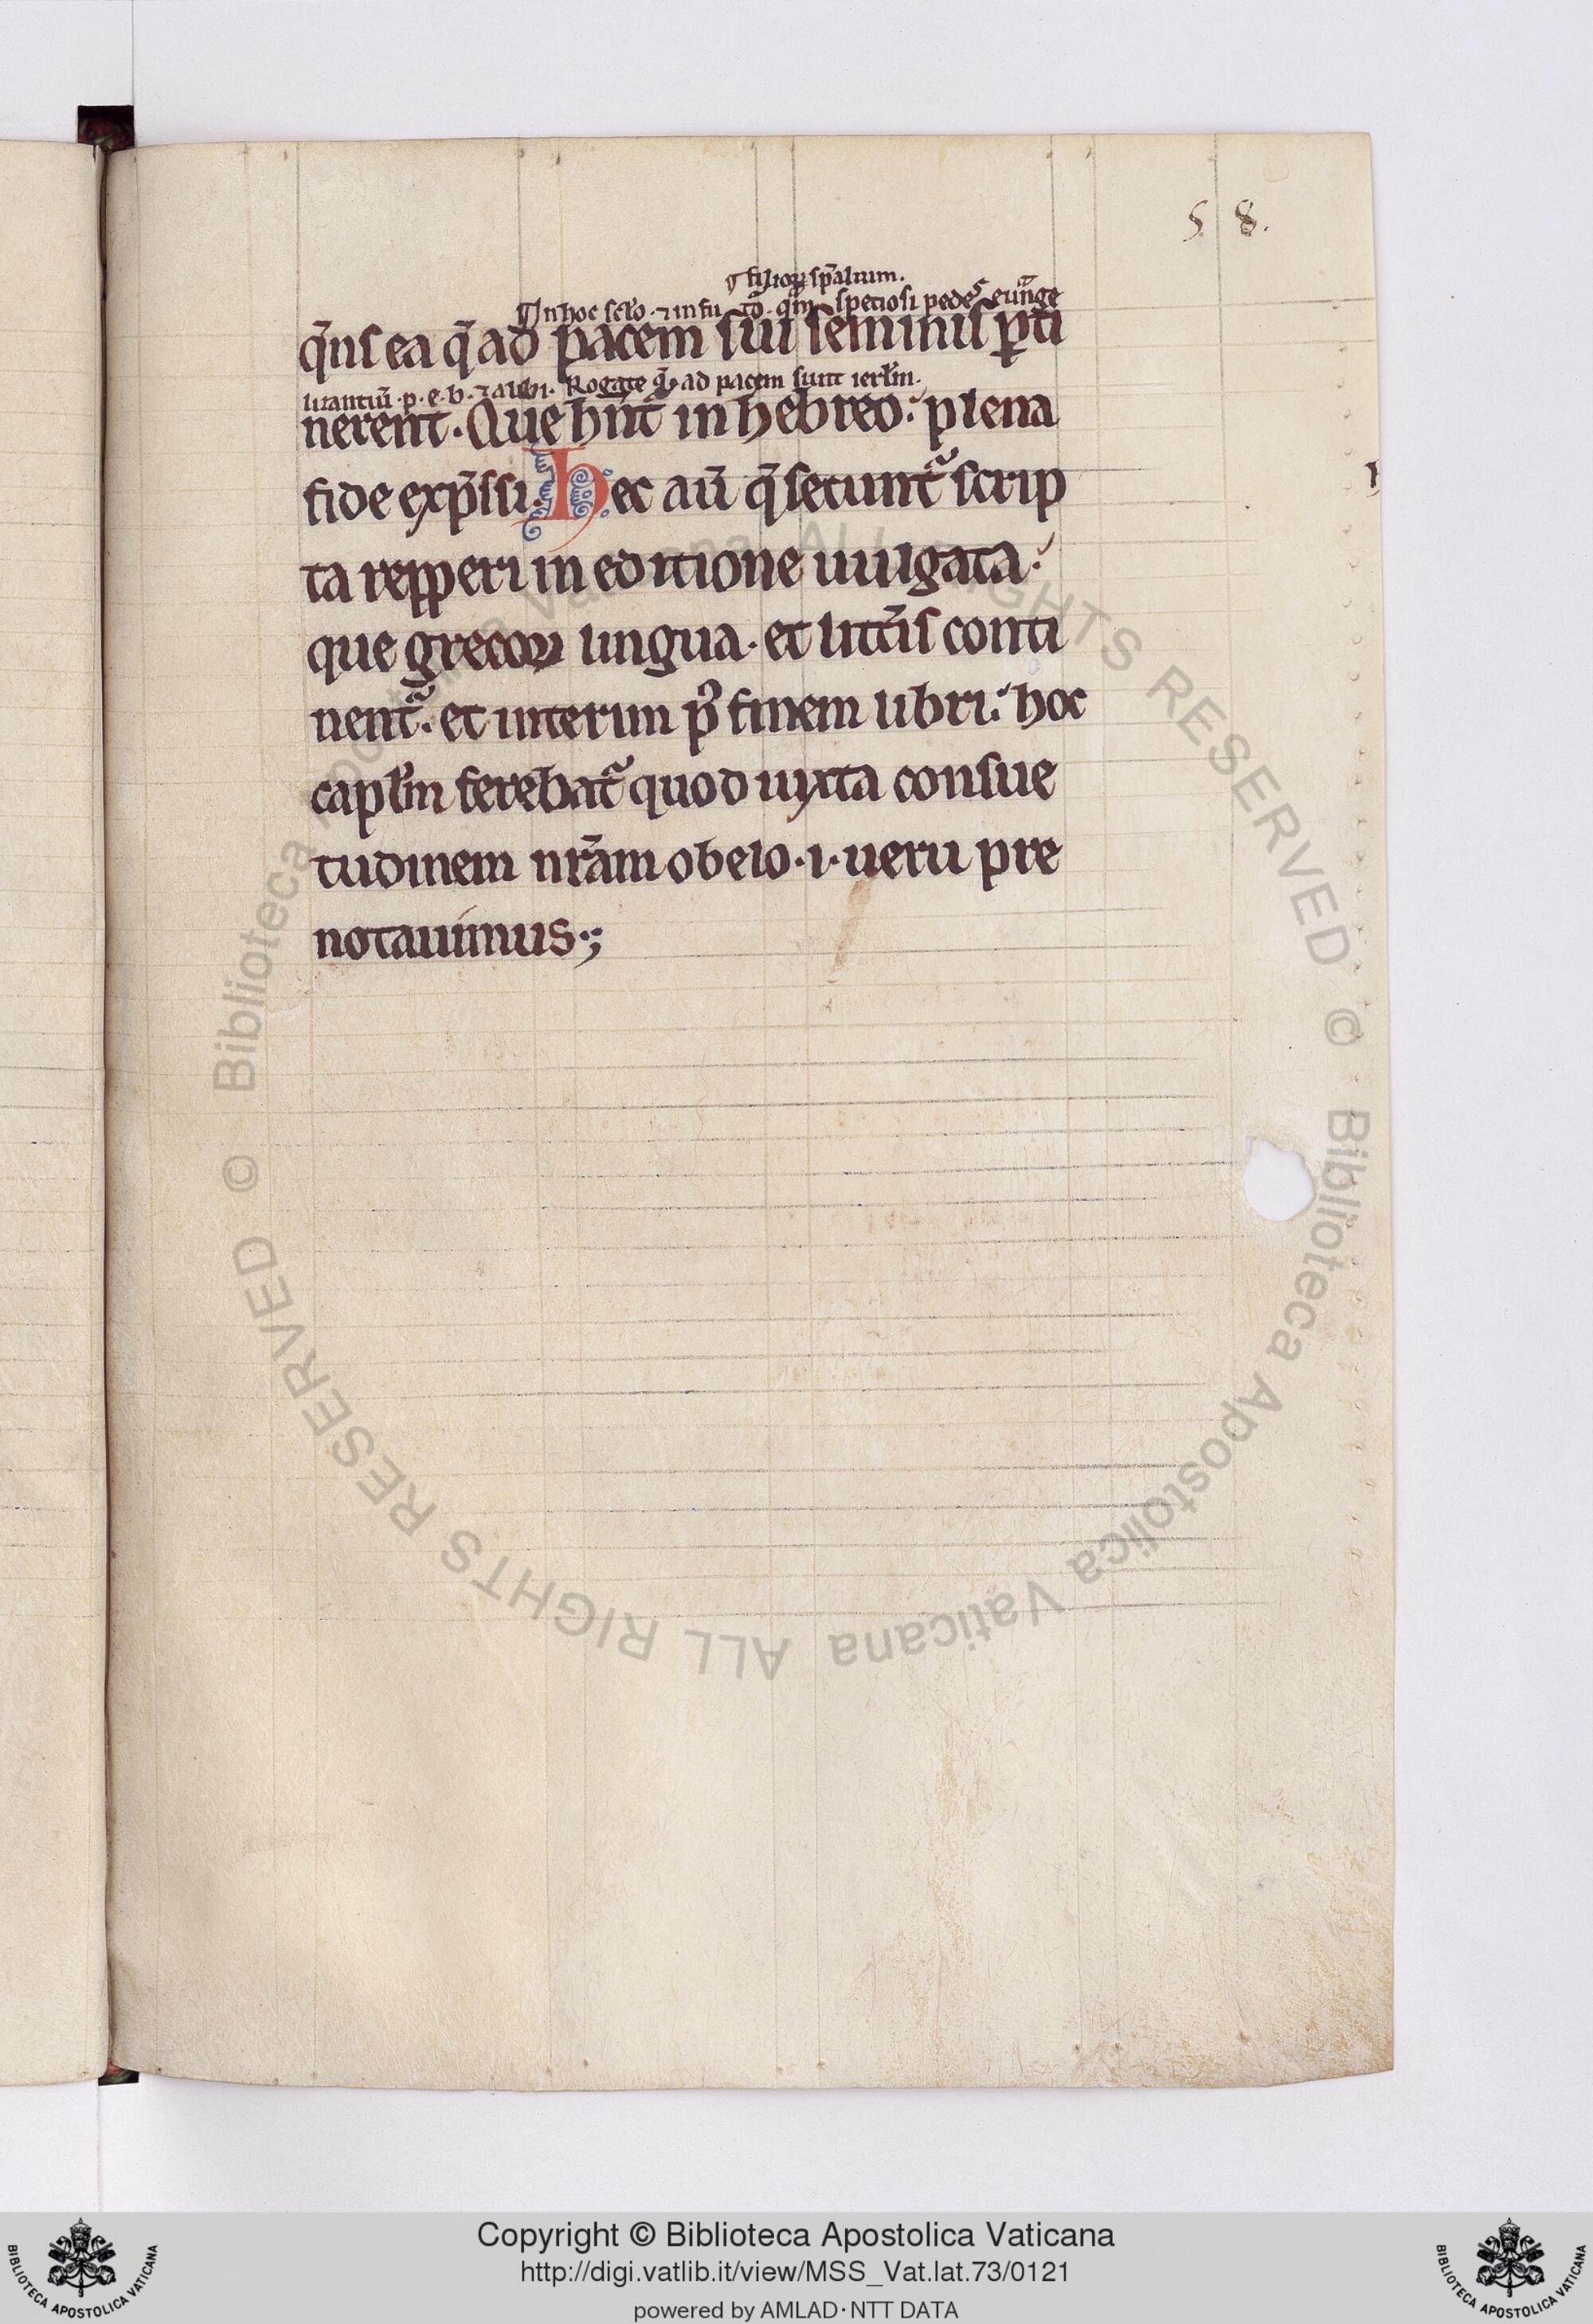 58.
¶ filioꝝ sp̄alium.
¶ In hoc sclo. ⁊ in fu turo. qm̄ speciosi pedes euᷓnge
q̄ns ea q̄ ad pacem sui seminis ꝑti
lizantiū .p. e. b. ⁊ alibi. Rogate q̄ ad pacem sunt ierlm̄.
nerent. Que hn̄t in hebreo: plena
fide exp̄ssi. Hec aū q̄ secunt᷑ scrip
ta repperi in editione uulgata:
que grecoꝝ lingua. et litt̄is conti
nent᷑. et interim p᷒ finem libri: hoc
capl̄m ferebat᷑ quod iuxta consue
tudinem nr̄am obelo .i. ueru pre
notauimus.;
© Biblioteca Apostolica Vaticana ALL RIGHTS RESERVED © Biblioteca Apostolica Vaticana ALL RIGHTS RESERVED
Copyright © Biblioteca Apostolica Vaticana
http://digi.vatlib.it/view/MSS_Vat.lat.73/0121
powered by AMLAD·NTT DATA
BIBLIOTECA APOSTOLICA VATICANA
BIBLIOTECA APOSTOLICA VATICANA